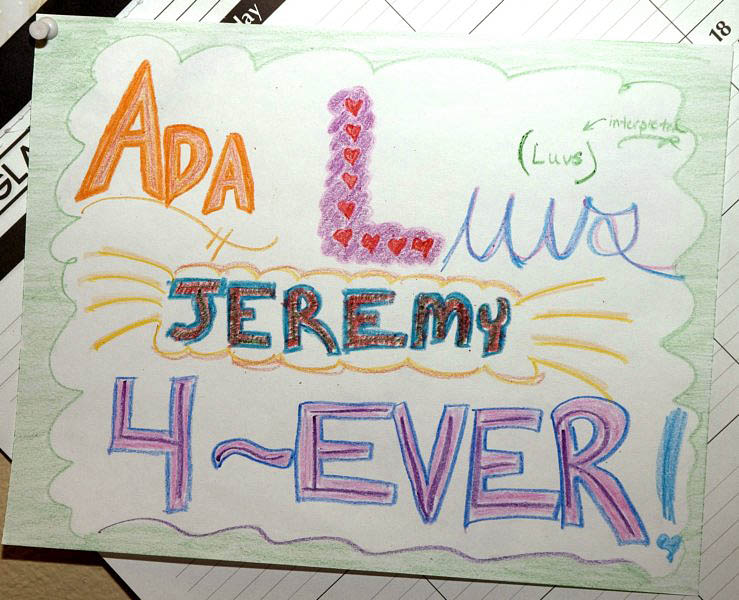 ay
18
GLA
ADA Luvs
(Luvs) interpreted
JEREMY
4~EVER!